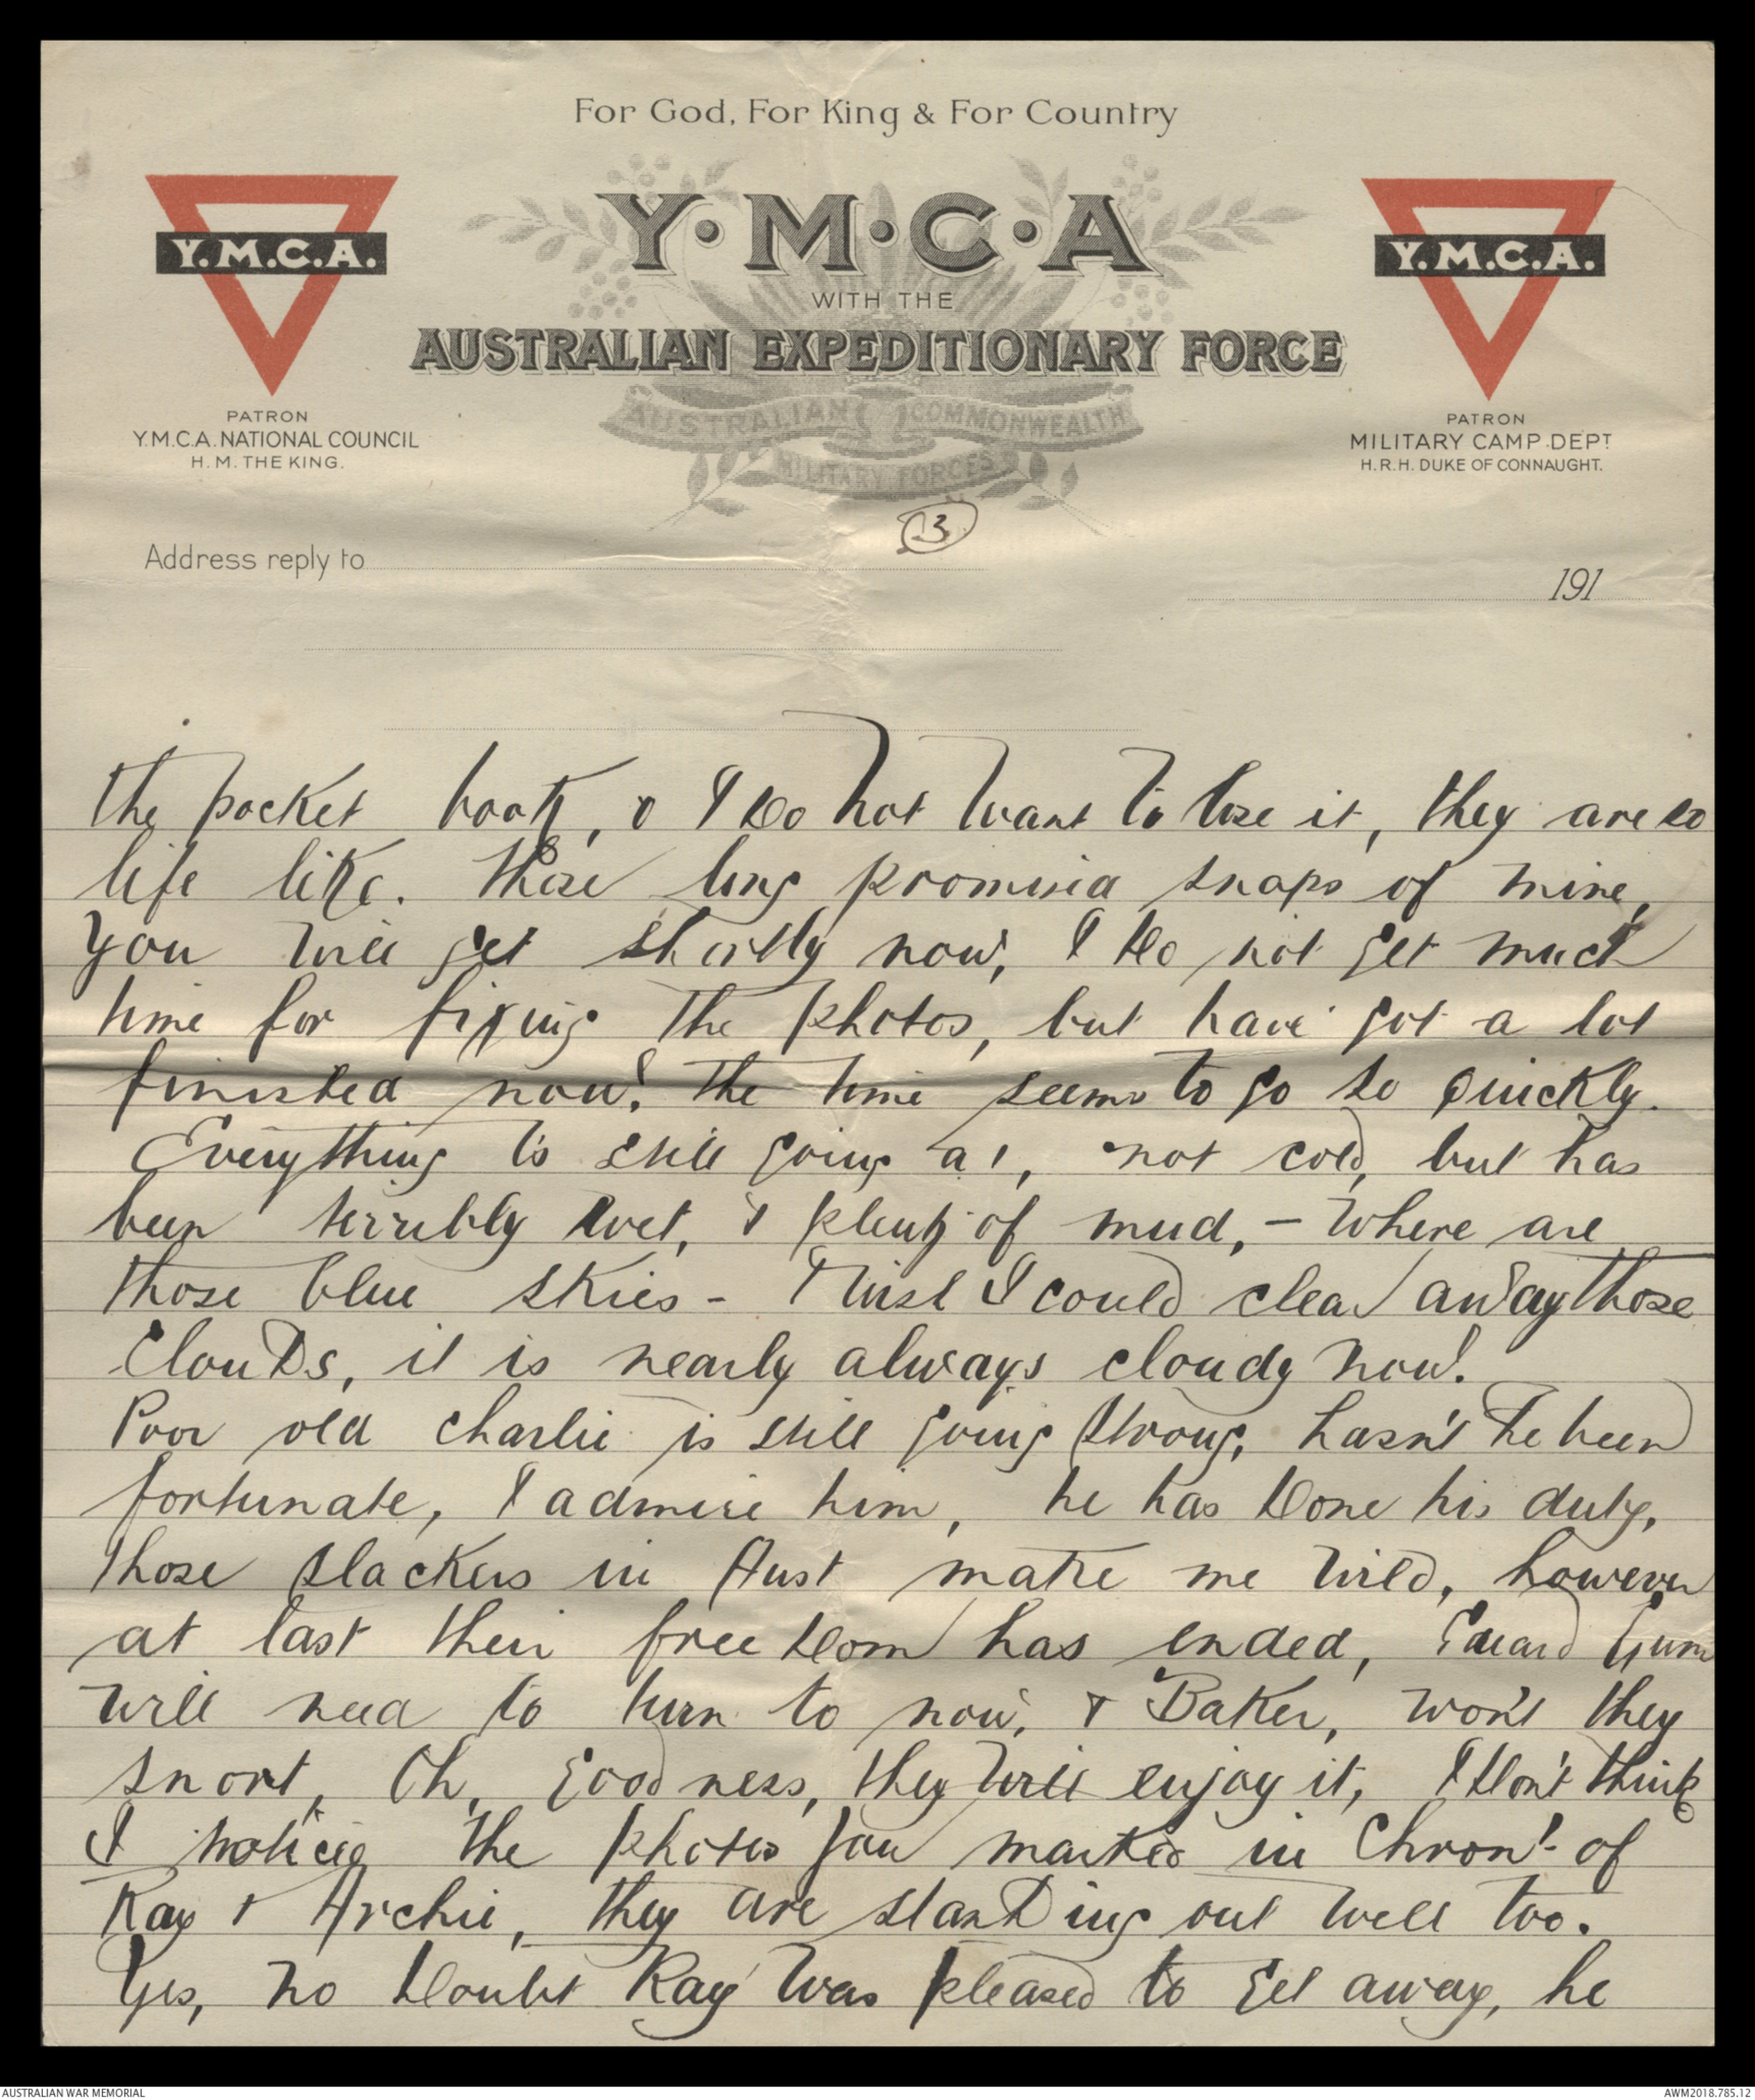 For God, For King & For Country
Y·M·C·A
Y.M.C.A.
Y.M.C.A.
WITH THE
AUSTRALIAN EXPEDITIONARY FORCE
AUSTRALIAN COMMONWEALTH
MILITARY FORCES
PATRON
Y.M.C.A. NATIONAL COUNCIL
H.M. THE KING.
PATRON
MILITARY CAMP DEPT
H.R.H. DUKE OF CONNAUGHT.
3
Address reply to
191
the pocket book, & I do not want to lose it, they are so
life like. Those long promised snaps of mine,
you will get shortly now, I do not get much
time for fixing the photos, but have got a lot
finished now! The time seems to go so quickly.
Everything is still going a1, not cold, but has
been terribly wet, & plenty of mud, - Where are
those blue skies - I wish I could clear away those
clouds, it is nearly always cloudy now!
Poor old Charlie is still going strong, hasn't he been
fortunate, I admire him, he has done his duty,
those slackers in Aust make me wild, however
at last their freedom has ended, Gum
will need to turn to now, & Baker, won't they
snort, Oh, Goodness, they will enjoy it, I don't think
I noticed the photos you marked in Chron! of
Ray & Archie, they are standing out well too.
Yes, no doubt Ray was pleased to get away, he
AUSTRALIAN WAR MEMORIAL
AWM2018.785.12